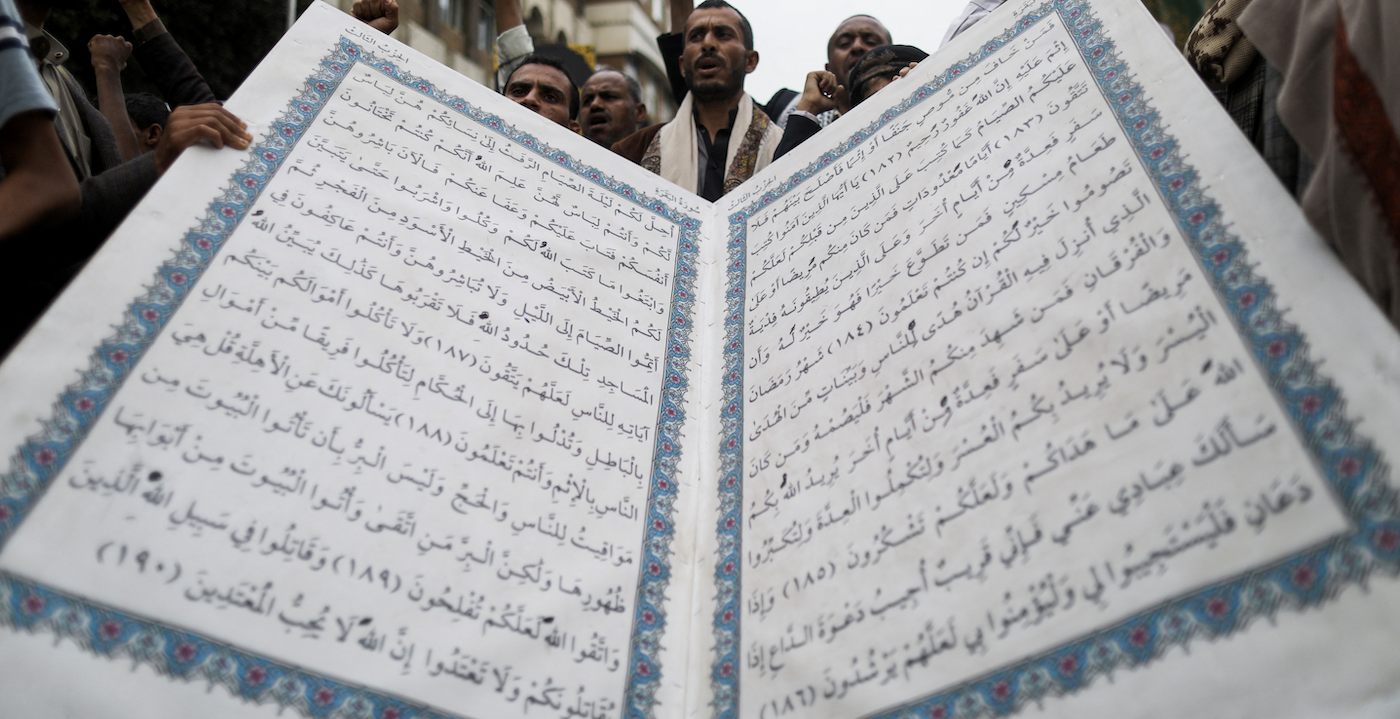 الحِزْبُ الثَّالِث
فَمَنْ خَافَ مِن مُّوصٍ جَنَفًا أَوْ إِثْمًا فَأَصْلَحَ بَيْنَهُمْ فَلَا
إِثْمَ عَلَيْهِ إِنَّ اللهَ غَفُورٌ رَّحِيمٌ (١٨٢) يَا أَيُّهَا الَّذِينَ آمَنُوا كُتِبَ
عَلَيْكُمُ الصِّيَامُ كَمَا كُتِبَ عَلَى الَّذِينَ مِن قَبْلِكُمْ لَعَلَّكُمْ
تَتَّقُونَ (١٨٣) أَيَّامًا مَّعْدُودَاتٍ فَمَن كَانَ مِنكُم مَّرِيضًا أَوْ عَلَىٰ
سَفَرٍ فَعِدَّةٌ مِّنْ أَيَّامٍ أُخَرَ وَعَلَى الَّذِينَ يُطِيقُونَهُ فِدْيَةٌ
طَعَامُ مِسْكِينٍ فَمَن تَطَوَّعَ خَيْرًا فَهُوَ خَيْرٌ لَّهُ وَأَن
تَصُومُوا خَيْرٌ لَّكُمْ إِن كُنتُمْ تَعْلَمُونَ (١٨٤) شَهْرُ رَمَضَانَ
الَّذِي أُنزِلَ فِيهِ الْقُرْآنُ هُدًى لِّلنَّاسِ وَبَيِّنَاتٍ مِّنَ الْهُدَىٰ
وَالْفُرْقَانِ فَمَن شَهِدَ مِنكُمُ الشَّهْرَ فَلْيَصُمْهُ وَمَن كَانَ
مَرِيضًا أَوْ عَلَىٰ سَفَرٍ فَعِدَّةٌ مِّنْ أَيَّامٍ أُخَرَ يُرِيدُ اللهُ بِكُمُ
الْيُسْرَ وَلَا يُرِيدُ بِكُمُ الْعُسْرَ وَلِتُكْمِلُوا الْعِدَّةَ وَلِتُكَبِّرُوا
اللهَ عَلَىٰ مَا هَدَاكُمْ وَلَعَلَّكُمْ تَشْكُرُونَ (١٨٥) وَإِذَا
سَأَلَكَ عِبَادِي عَنِّي فَإِنِّي قَرِيبٌ أُجِيبُ دَعْوَةَ الدَّاعِ إِذَا
دَعَانِ فَلْيَسْتَجِيبُوا لِي وَلْيُؤْمِنُوا بِي لَعَلَّهُمْ يَرْشُدُونَ (١٨٦)
سُورَةُ البَقَرَة
الحِزْبُ الثَّالِث
أُحِلَّ لَكُمْ لَيْلَةَ الصِّيَامِ الرَّفَثُ إِلَىٰ نِسَائِكُمْ هُنَّ لِبَاسٌ
لَّكُمْ وَأَنتُمْ لِبَاسٌ لَّهُنَّ عَلِمَ اللهُ أَنَّكُمْ كُنتُمْ تَخْتَانُونَ
أَنفُسَكُمْ فَتَابَ عَلَيْكُمْ وَعَفَا عَنكُمْ فَالْآنَ بَاشِرُوهُنَّ
وَابْتَغُوا مَا كَتَبَ اللهُ لَكُمْ وَكُلُوا وَاشْرَبُوا حَتَّىٰ يَتَبَيَّنَ
لَكُمُ الْخَيْطُ الْأَبْيَضُ مِنَ الْخَيْطِ الْأَسْوَدِ مِنَ الْفَجْرِ ثُمَّ
أَتِمُّوا الصِّيَامَ إِلَى اللَّيْلِ وَلَا تُبَاشِرُوهُنَّ وَأَنتُمْ عَاكِفُونَ فِي
الْمَسَاجِدِ تِلْكَ حُدُودُ اللهِ فَلَا تَقْرَبُوهَا كَذَٰلِكَ يُبَيِّنُ اللهُ
آيَاتِهِ لِلنَّاسِ لَعَلَّهُمْ يَتَّقُونَ (١٨٧) وَلَا تَأْكُلُوا أَمْوَالَكُم بَيْنَكُم
بِالْبَاطِلِ وَتُدْلُوا بِهَا إِلَى الْحُكَّامِ لِتَأْكُلُوا فَرِيقًا مِّنْ أَمْوَالِ
النَّاسِ بِالْإِثْمِ وَأَنتُمْ تَعْلَمُونَ (١٨٨) يَسْأَلُونَكَ عَنِ الْأَهِلَّةِ قُلْ هِيَ
مَوَاقِيتُ لِلنَّاسِ وَالْحَجِّ وَلَيْسَ الْبِرُّ بِأَن تَأْتُوا الْبُيُوتَ مِن
ظُهُورِهَا وَلَٰكِنَّ الْبِرَّ مَنِ اتَّقَىٰ وَأْتُوا الْبُيُوتَ مِنْ أَبْوَابِهَا
وَاتَّقُوا اللهَ لَعَلَّكُمْ تُفْلِحُونَ (١٨٩) وَقَاتِلُوا فِي سَبِيلِ اللهِ الَّذِينَ
يُقَاتِلُونَكُمْ وَلَا تَعْتَدُوا إِنَّ اللهَ لَا يُحِبُّ الْمُعْتَدِينَ (١٩٠)